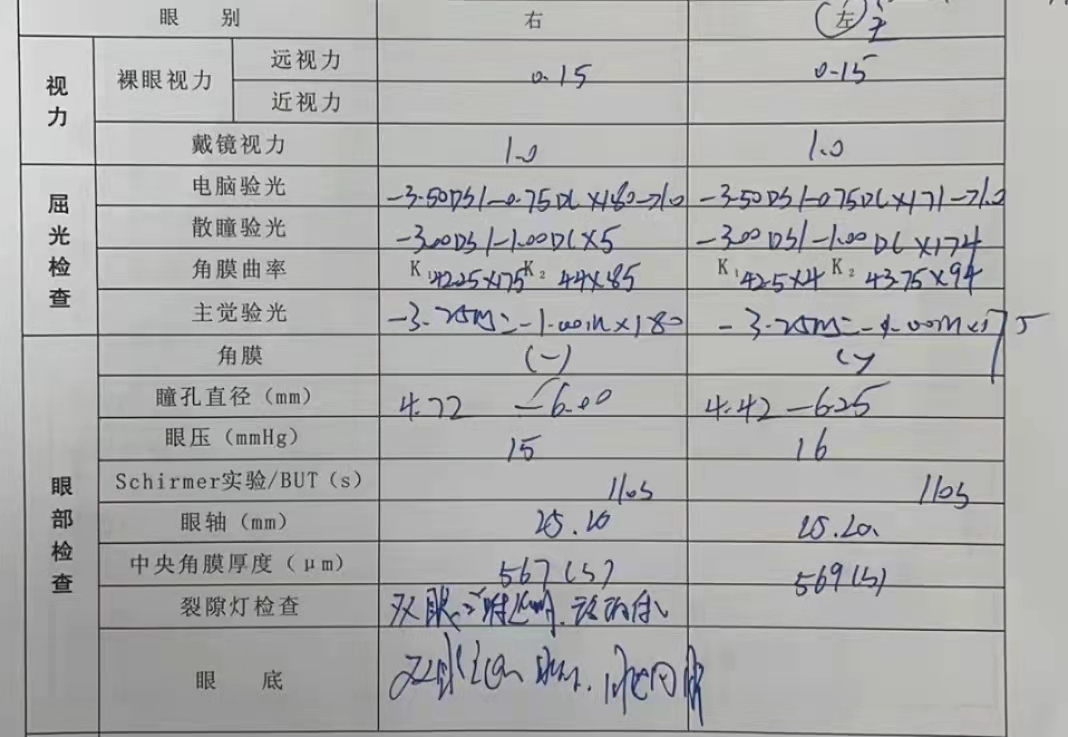 眼 别 右 左 主
视力
裸眼视力 远视力 0.15 0.15
近视力
戴镜视力 1.0 1.0
屈光检查
电脑验光 -3.50DS/-0.75DC×180→1.0 -3.50DS/-0.75DC×171→1.0
散瞳验光 -3.00DS/-1.00DC×5 -3.00DS/-1.00DC×174
角膜曲率 K₁ 42.25×175 K₂ 44×85 K₁ 42.5×4 K₂ 43.75×94
主觉验光 -3.75 -1.00 ×180 -3.75 -1.00 ×175
眼部检查
角膜 (-) (-)
瞳孔直径（mm） 4.72 -6.00 4.42 -6.25
眼压（mmHg） 15 16
Schirmer实验/BUT（s）
眼轴（mm） 25.20
中央角膜厚度（μm） 567(S) 569(S)
裂隙灯检查 双眼
眼 底 双眼